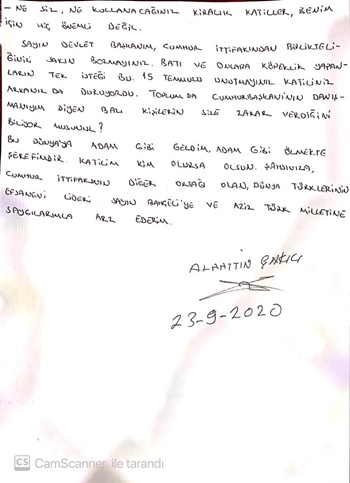 - NE SİZ, NE KULLANACAĞINIZ KİRALIK KATİLLER, BENİM
İÇİN HİÇ ÖNEMLİ DEĞİL.
SAYIN DEVLET BAŞKANIM, CUMHUR İTTİFAKINDAN BİRLİKTELİ-
ĞİNİZİ SAKIN BOZMAYINIZ. BATI VE ONLARA KÖPEKLİK YAPAN-
LARIN TEK İSTEĞİ BU. 15 TEMMUZU UNUTMAYINIZ KATİLİNİZ
ARKANIZDA DURUYORDU. TOPLUMDA CUMHURBAŞKANININ DANIŞ-
MANIYIM DİYEN BAZI KİŞİLERİN SİZE ZARAR VERDİĞİNİ
BİLİYOR MUSUNUZ?
BU DÜNYAYA ADAM GİBİ GELDİM, ADAM GİBİ ÖLMEKTE
ŞEREFİMDİR. KATİLİM KİM OLURSA OLSUN. ŞAHSINIZA,
CUMHUR İTTİFAKININ DİĞER ORTAĞI OLAN, DÜNYA TÜRKLERİNİN
EFSANEVİ LİDERİ SAYIN BAHÇELİ'YE VE AZİZ TÜRK MİLLETİNE
SAYGILARIMLA ARZ EDERİM.
ALAATTİN ÇAKICI
23-9-2020
CS CamScanner ile tarandı